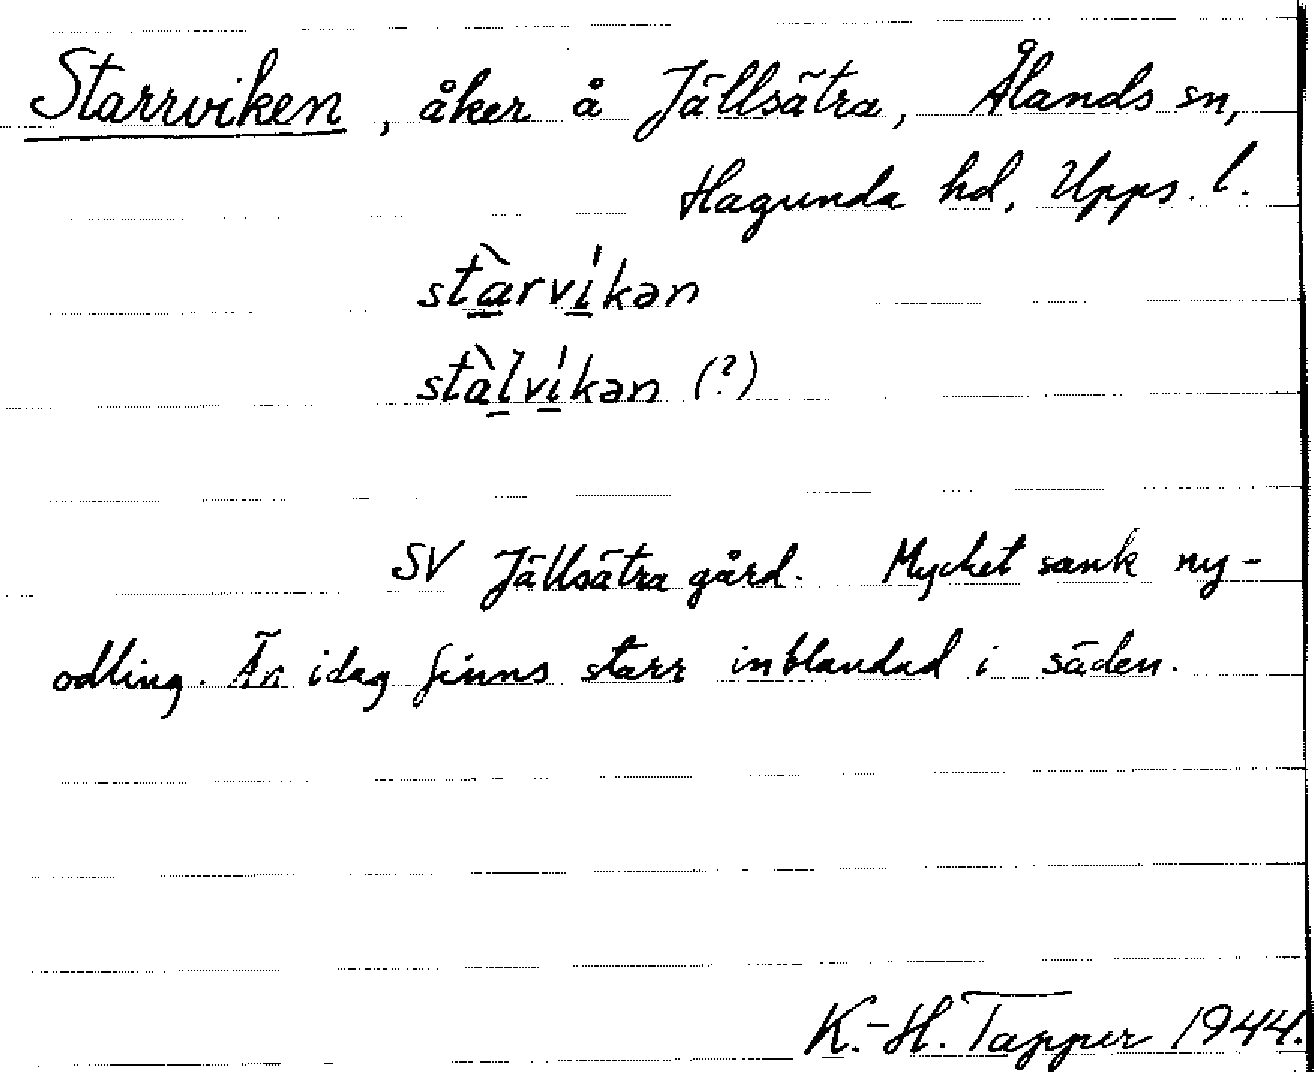 Starrviken, åker å Jällsätra, Ålands sn,
Hagunda hd, Upps. l.
stàrvíkən
stàlvíkən (?)
SV Jällsätra gård. Mycket sank ny-
odling. Än idag finns starr inblandad i säden.
K.-H. Tapper 1944.